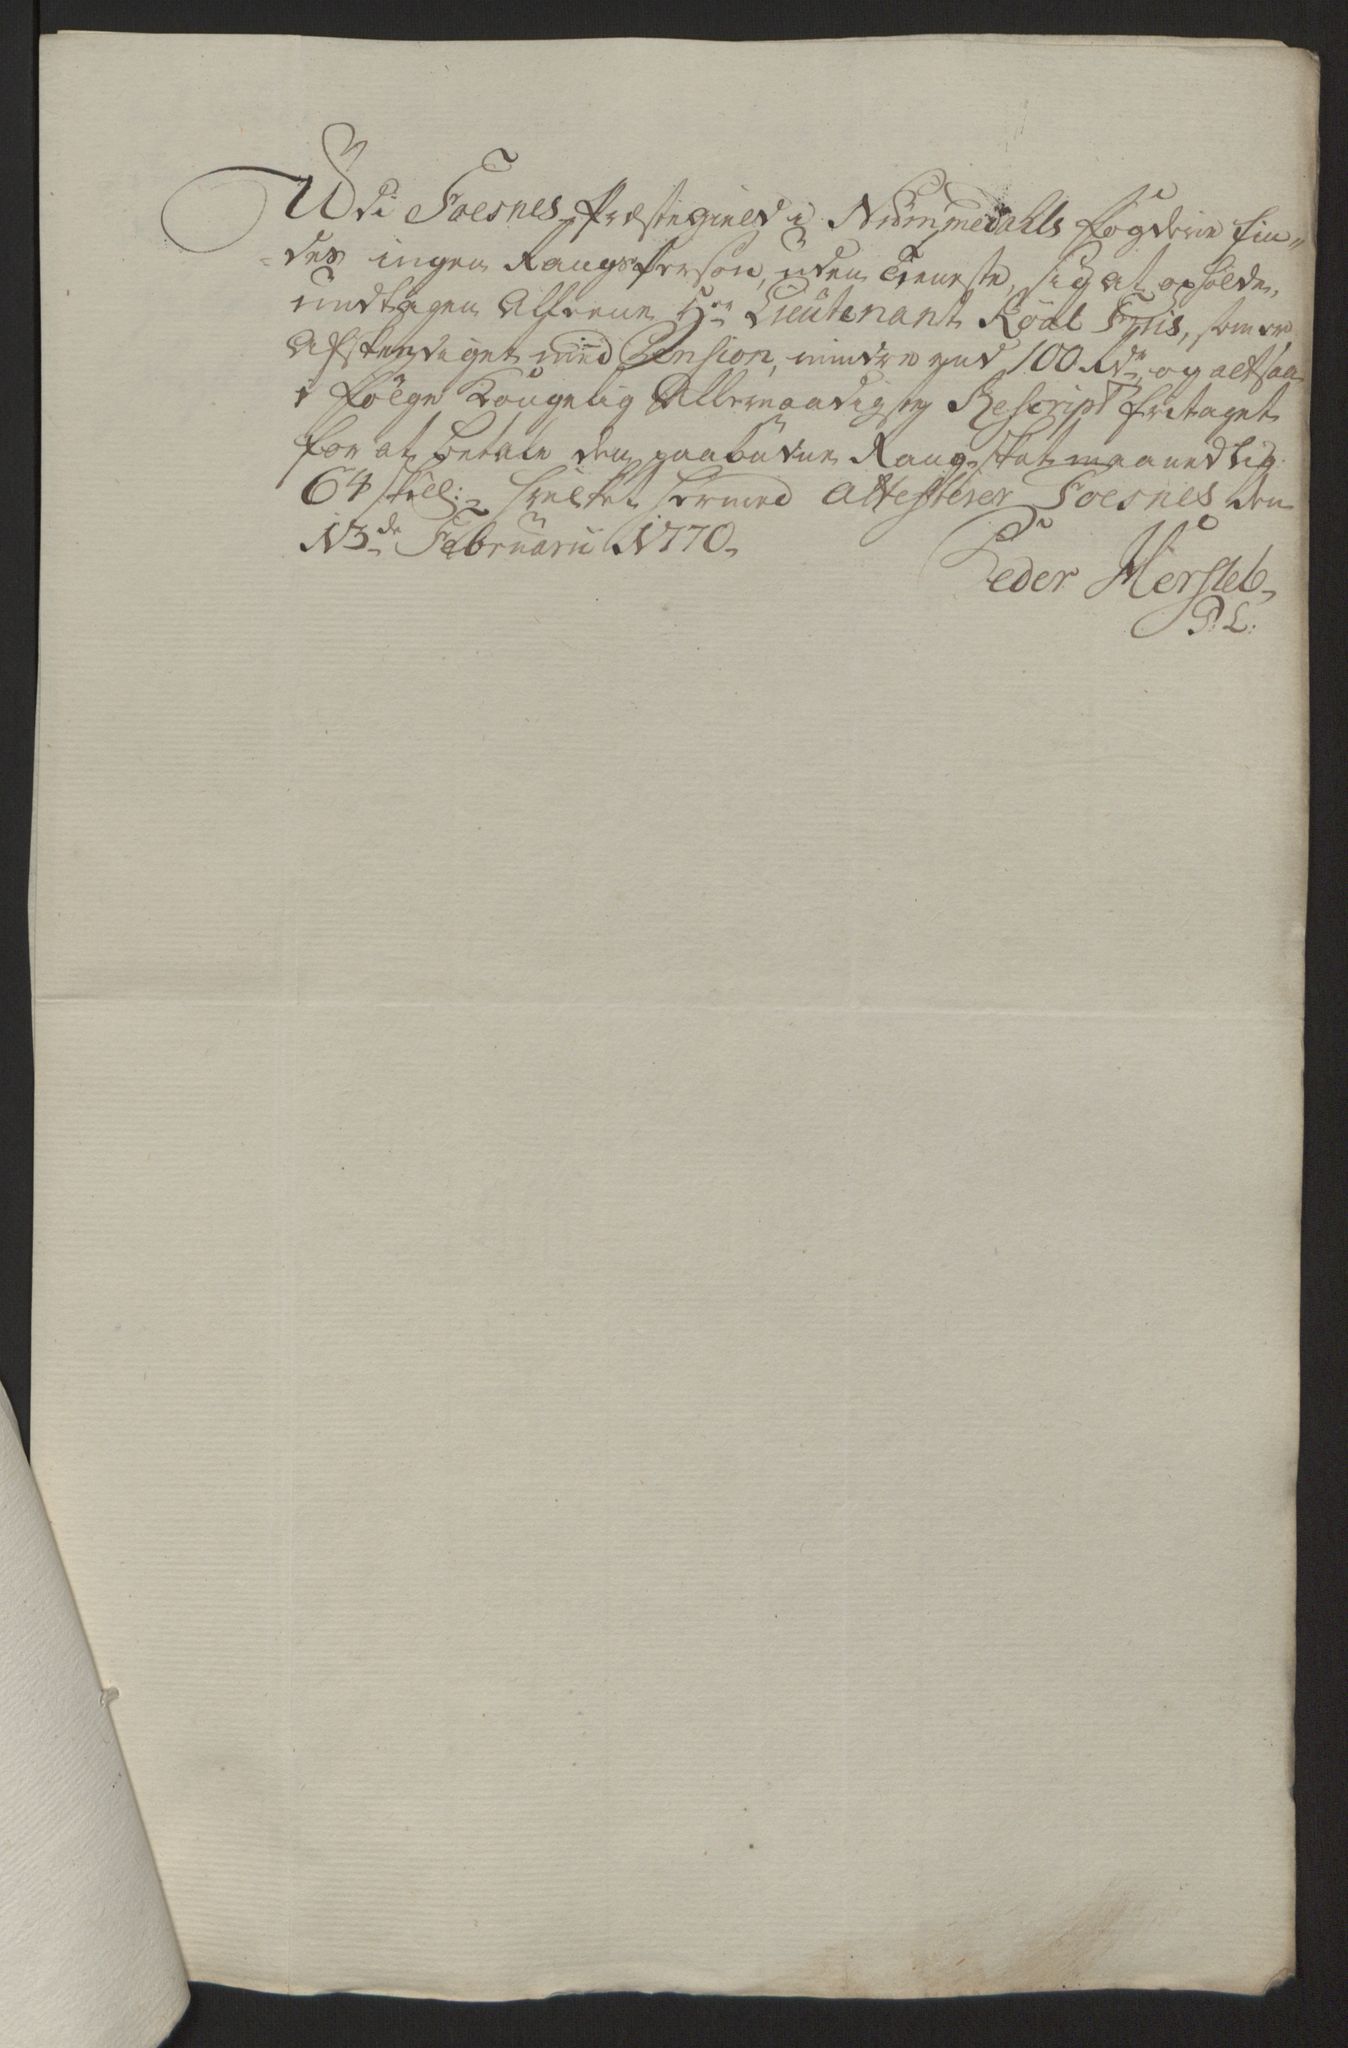 Udi Foesnes Præstegield i Nummedahls fogderie fin„
„des ingen Rangs Person, uden Tieneste, sig at opholde,
undtagen Alleene Hr Lieutenant Roal Friis, som er
Afskendiget med Pension, mindre end 100 Rdr, og altsaa
i følge Kongelig Allernaadigste Rescript fritaget
for at betale den paabudne Rang-Skat maanedlig
64 skill: hvilket hermed Attesterer Foesnes den
13de Februarii 1770.
Peder Hersleb
P: L: